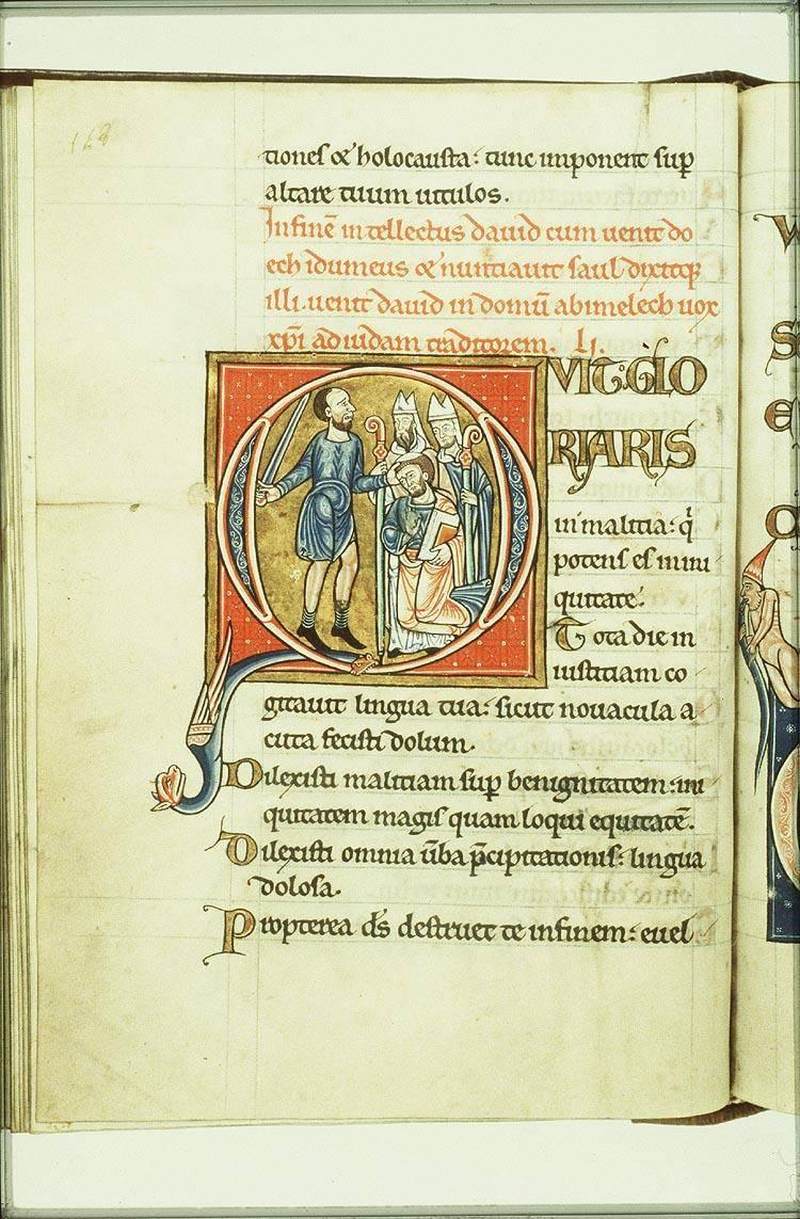 168
tiones & holocausta: tunc imponent sup̄
altare tuum uitulos.
Infinē intellectus dauid cum uenit do
ech idumeus & nuntiauit saul dixitq̄
illi. uenit dauid in domū abimelech uox
xp̄i ad iudam traditorem. Li.
QVIT GLO
RIARIS
in malitia: q̇
potens es in ini
quitate.
Tota die in
iustitiam co
gitauit lingua tua: sicut nouacula a
cuta fecisti dolum.
Dilexisti malitiam sup̄ benignitatem: ini
quitatem magis quam loqui equitatē.
Dilexisti omnia ūba p̄cipitationis: lingua
dolosa.
Propterea d̄s destruet te infinem: euel
V
S
E
O